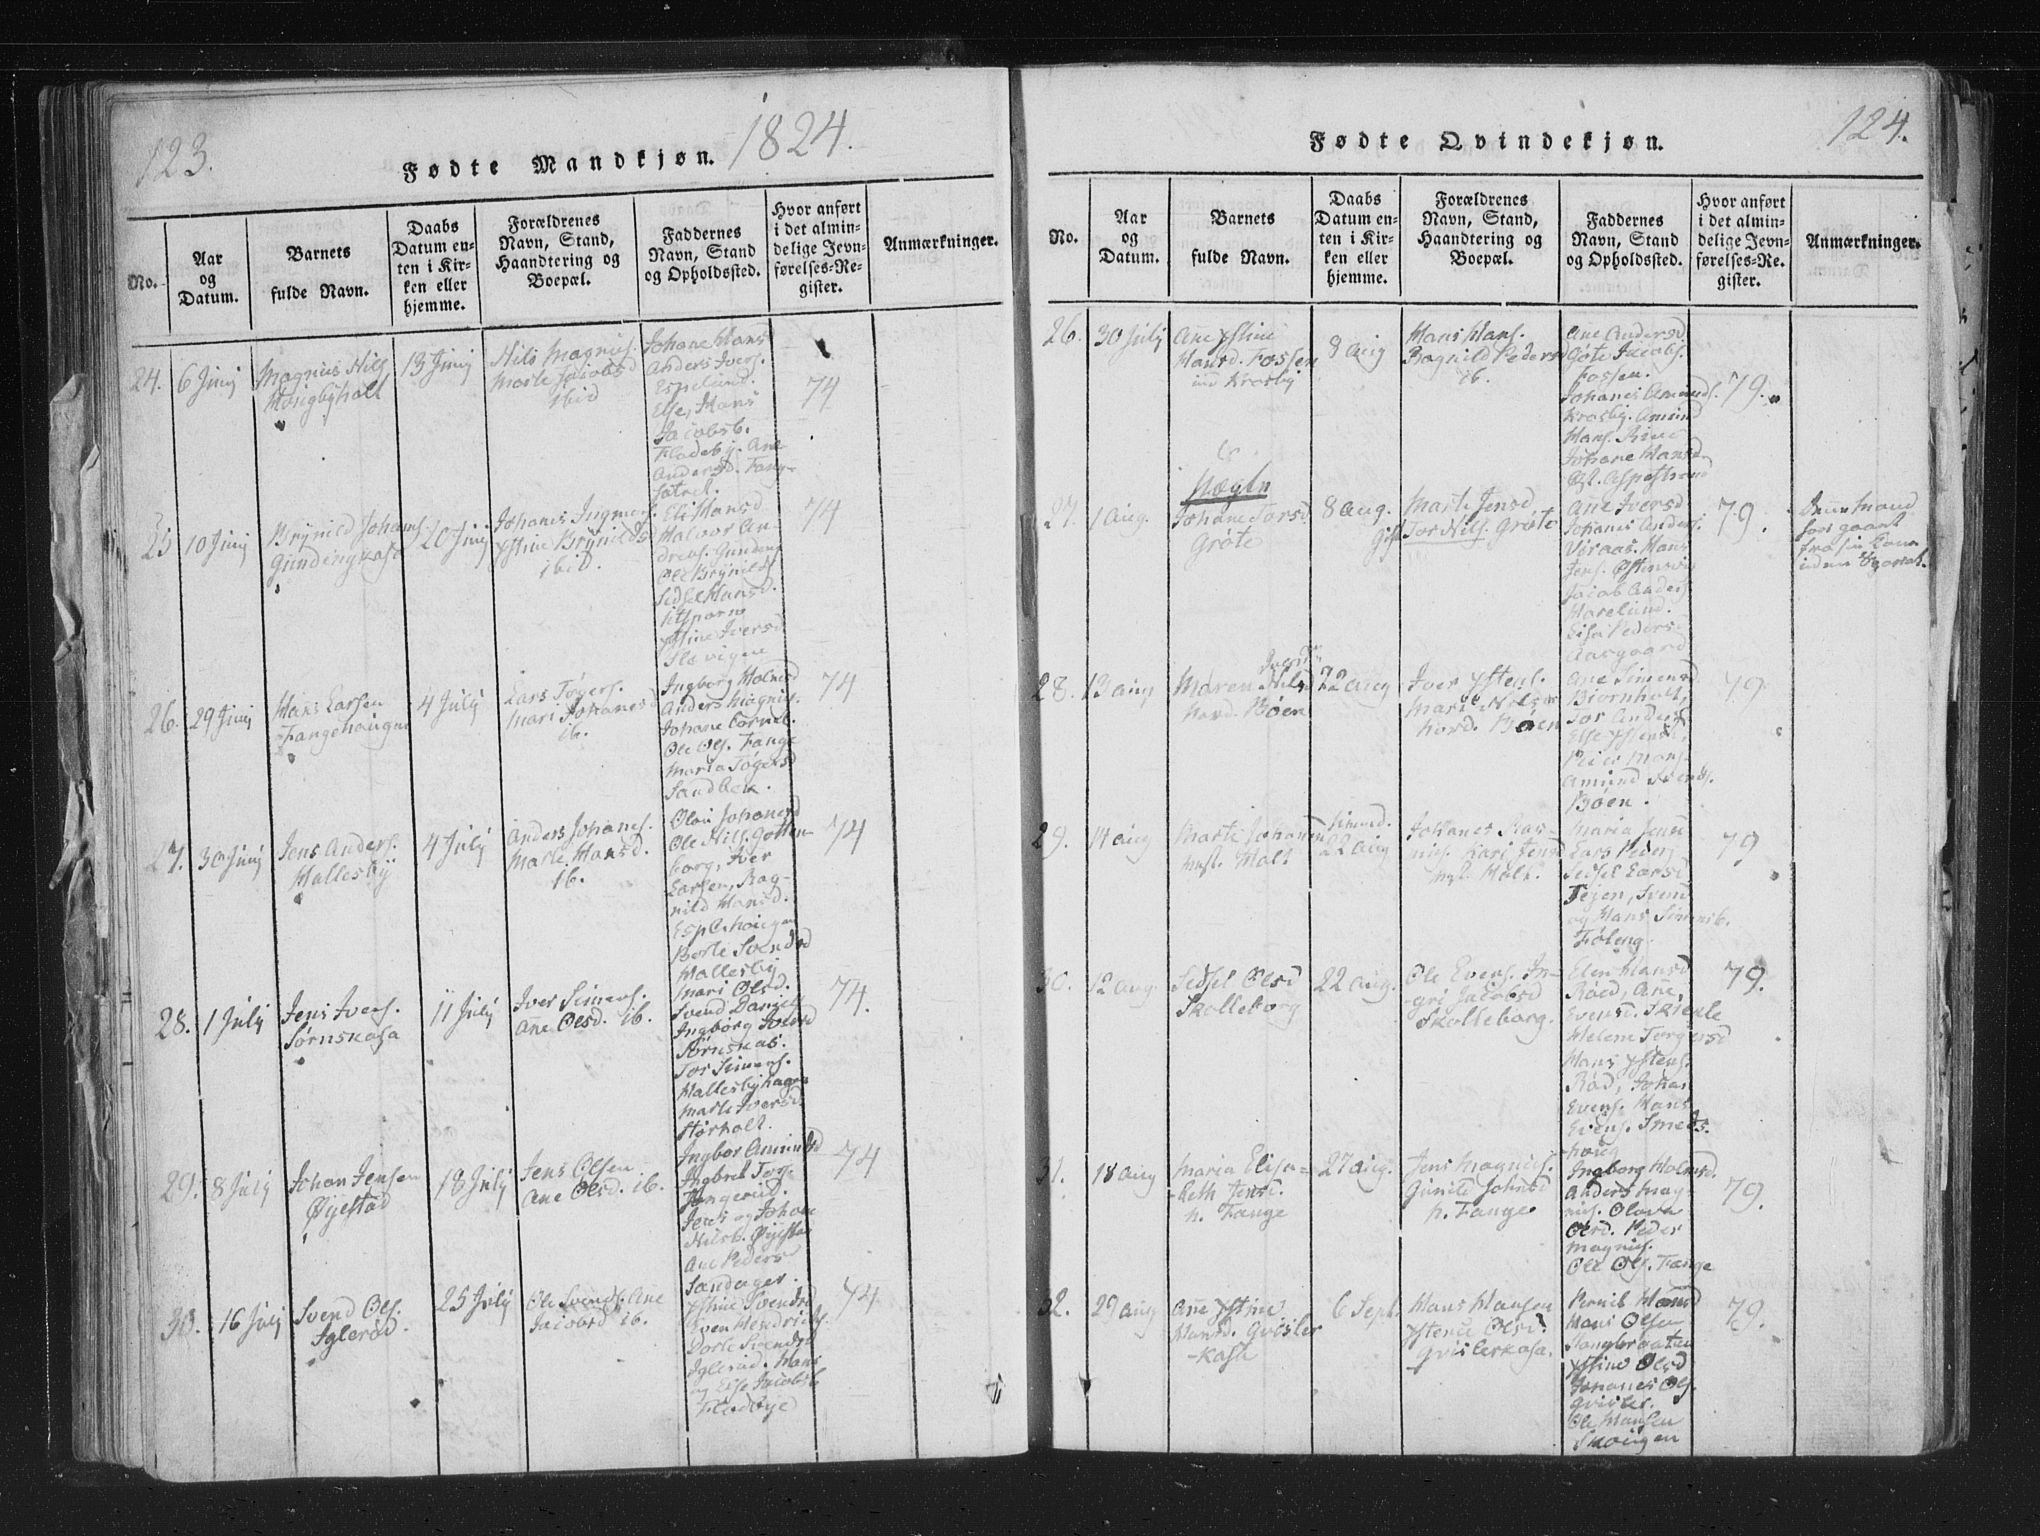 123.
Fødte Mandkjøn. 1824.
No.
Aar
og
Datum.
Barnets
fulde Navn.
Daabs
Datum en-
ten i Kir-
ken eller
hjemme.
Forældrenes
Navn, Stand,
Haandtering og
Boepæl.
Faddernes
Navn, Stand
og Opholdssted.
Hvor anført
i det almin-
delige Jevn-
førelses-Re-
gister.
Anmærkninger.
24.
6 Junj
Magnus Nils.
13 Junij
Nils Magnus.
Marte Jacobsd
ibid
Johane Hans
Anders Ivers.
Espelund.
Else, Hans
Jacobsb.
Fladebÿ. Ane
Andersd. Fang-
74
25
10 Junj
Brÿnild Johans.
20 Junj
Johanis Ingmer
ÿstine Brÿnilds
ibid.
Eli Hansd
Halvor An-
dreas.
Ole Brÿnilds
Sidsel Hansd.
ÿstine Iversd
74
26.
29 Junj
Hans Larsen
Fangehaugen
4 Julÿ
Lars Tøgers.
Mari Johanesd
ib.
Ingborg Holmsd
Anders Magnus.
Johane Cornel.
Ole Ols. Fange
Maria Tøgersd
Sandbek.
74
27.
30 Junj
Jens Anders.
Hallesbÿ
4 Julÿ
Anders Johanes.
Marte Hansd.
ib.
Olau Johanesd
Ole Nils. Gotten-
borg, Iver
Larsen, Rag-
nild Hansd.
Espelhaugen
Berte Svendsd
Hallesbÿ
74
28.
1 Julÿ
Jens Ivers.
Sørnskasa
11 Julÿ
Iver Simens.
Ane Olsd. ib.
Mari Olsd.
Svend Daniels
Ingborg Svends
Sørnskas.
Tor Simens.
Hallesbÿhagen
Marte Iversd
Størholt.
74.
29.
8 Julÿ
Johan Jensen
Øÿestad
18 Julÿ
Jens Olsen
Ane Olsd. ib.
Ingbor Amundsd
Ingbret Tors.
Jens og Johane
Nilsb. Øÿestad
Ane Peders
Sandager.
74
30.
16 Julj
Svend Ols.
Iglerød.
25 Julÿ
Ole Svends. Ane
Jacobsd ib.
ÿstine Svendsd
Even Hendrichs.
Dorte Svendsd
Iglerød. Hans
og Else Jacobsb
74
124.
Fødte Qvindekjøn.
No.
Aar
og
Datum.
Barnets
fulde Navn.
Daabs
Datum en-
ten i Kir-
ken eller
hjemme.
Forældrenes
Navn, Stand,
Haandtering og
Boepæl.
Faddernes
Navn, Stand
og Opholdssted.
Hvor anført
i det almin-
delige Jevn-
førelses-Re.
gister.
Anmærkninger.
26.
30 Julÿ
Ane ÿstine
Hansd. Fossen
und Krosbÿ
8 Aug
Hans Hans.
Ragnild Peders
ib.
Ane Andersd
Gøte Jacobs.
Fossen.
Johanis Amunds.
Krosbÿ. Amund
Hans.
Johane Hansd
79.
27.
1 Aug.
Uægte
Johane Torsd
Grøte
8 Aug.
Marte Jensd
Gift Tor Nils. Grøte
Ane Iversd
Johanes Anders.
Viraas. Hans
Jens.
Jacob Anders
Harelund.
Elise Peders
Aasgaard
79.
Denne Mand
fra sin Kone
28.
13 Aug
Maren Nilsd
Iversd
Nord. Bøen
22 Aug
Iver ÿstens.
Mari Nilsd
Nord. Bøen
Ane Simensd
Biørnholt,
Tor Anders
Else ÿstensd,
Peder Mons.
Amund Svends.
Bøen.
79
29.
14 Aug
Marte Johannesd
22 Aug
Johanes Ras-
mus. Kari Jensd
Maria Jens
Lars Peders
Sidsel Larsd
Tejen, Svend
og Hans Simensb.
Føleng.
79
30.
12 Aug
Sidsel Olsd
Skolleborg
22 Aug.
Ole Evens. In-
gri Jacobsd
Skolleborg.
Elen Hansd
Røed, Ane,
Evensd.
Helene Torgersd
Hans ÿstens.
Rød, Johan
Evens. Hans
Evens. Smeds-
houg
79.
31.
18 Aug
Maria Elisa-
beth Jensd.
n. Fange
27 Aug.
Jens Magnus.
Gunild Johnsd
n. Fange.
Ingborg Holmsd.
Anders Mag-
nus. Olava
Olsd. Peder
Magnus.
Ole Ols. Fange
79.
32.
29 Aug
Ane ÿstine
Hansd. Gvisler
-kasa
6 Sept.
Hans Hansen
ÿstenne Olsd.
Gvislerkasa.
Pernil Hansd
Hans Olsen
ÿstine Olsd
Johanes Ols.
Gvisler.
Ole Hansen
Skougen
79.